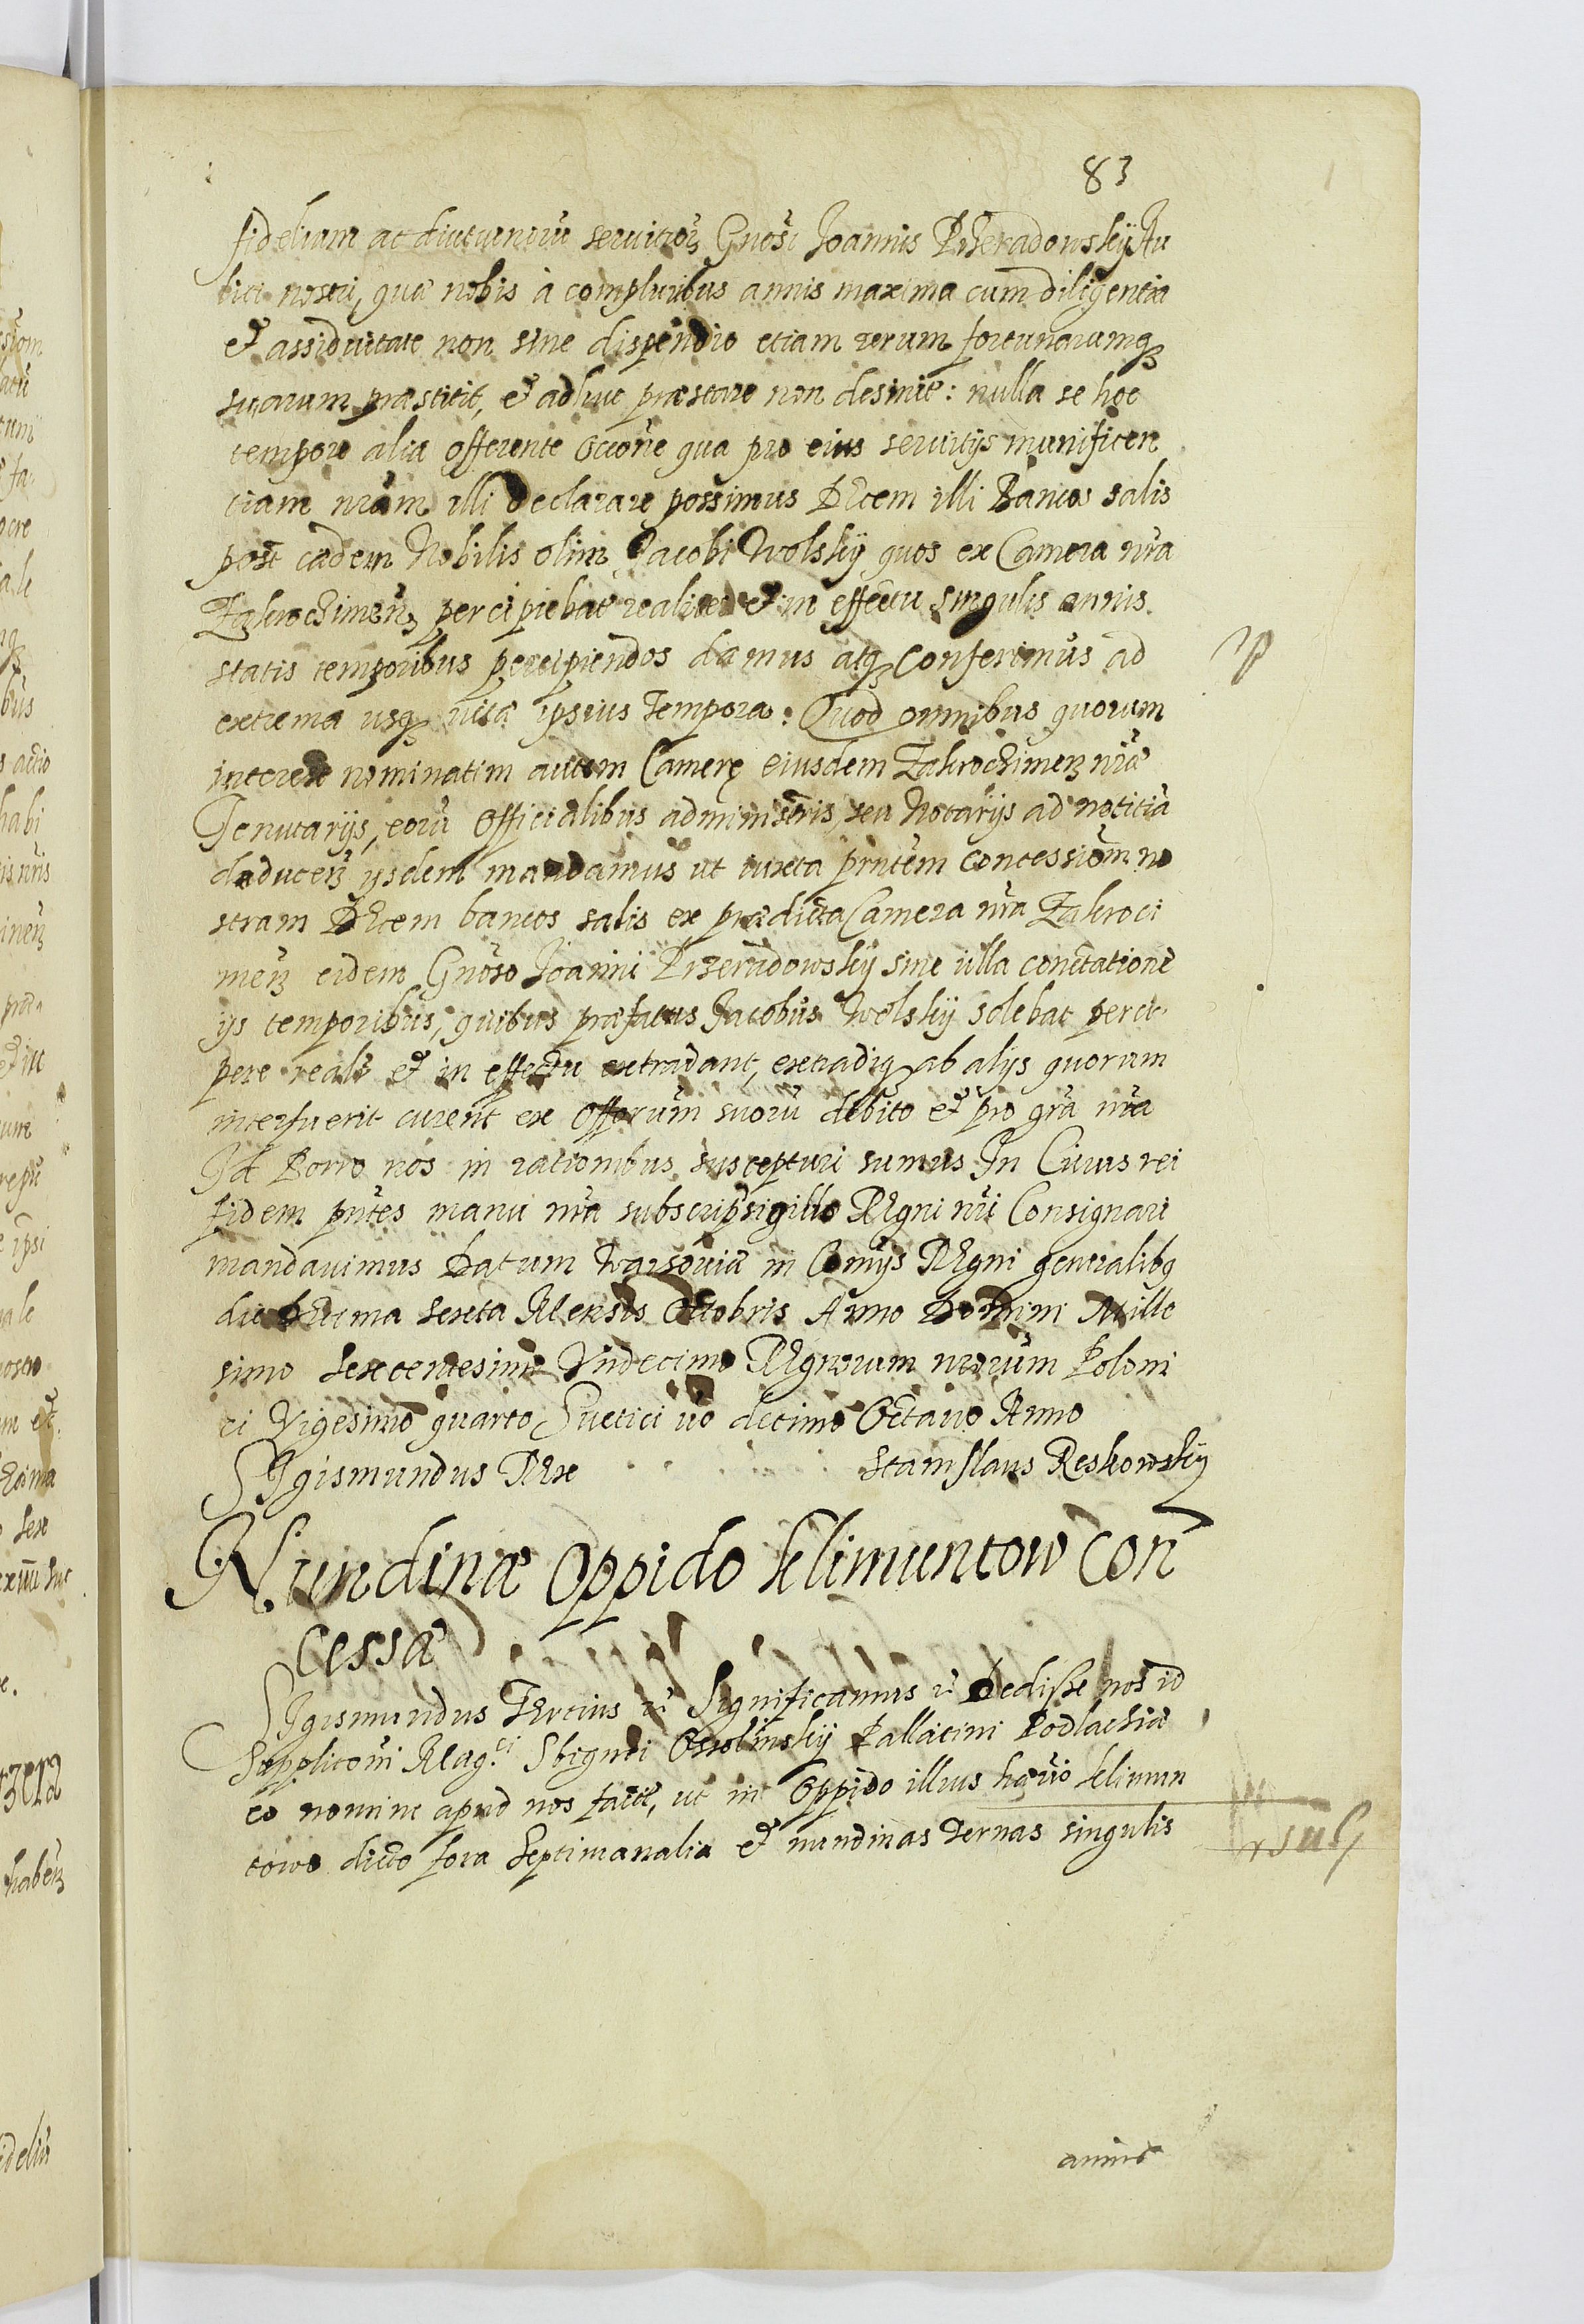 83
fidelium ac diuturnorũ seruitiorꝫ Gnõsi Joannis Przeradowskÿ Au
lici nostri, quæ nobis à compluribus annis maxima cum diligentia
et assiduitate non sine dispendio etiam rerum fortunarumqꝫ
suarum præstitit, et adhuc præstare non desinit: nulla se hoc
tempore alia offerente occõne qua pro eius seruitijs munificen
tiam nrãm illi declarare possimus Decem illi Bancos salis
post cædem Nobilis olim Jacobi Wolskÿ quos ex Camera nrã
Zakroczimeñ percipiebat realiter et in effectu singulis annis
statis temporibus percipiendos damus atqꝫ conferimus ad
extrema usqꝫ vitæ ipsius tempora. Quod omnibus quorum
interest nominatim autem Camerę eiusdem Zakroczimenꝫ nræ
Tenutarijs, eorũ officialibus administris, seu Notarijs ad notitiã
deducenꝫ ijsdem mandamus ut iuxta prñtem concessionem no
stram Decem bancos salis ex prædicta Camera nrã Zakroci
menꝫ eidem Gnõso Joanni Przeradowskÿ sine ulla conctatione
ijs temporibus, quibus præfatus Jacobus Wolskÿ solebat perci
pere realr et in effectu extradant, extradiqꝫ ab alijs quorum
interfuerit curent ex officiorum suorũ debito et pro grã nrã
Id Porro nos in rationibus suscepturi sumus In Cuius rei
fidem prñtes manu nrã subscrip sigillo Regni nrĩ Consignari
mandauimus Datum Warsouiæ in Comitijs Regni generalibꝫ
die Decima sexta Mensis Octobris Anno Domini Mille
simo Sexcentesimo Vndecimo Regnorum nrõrum Poloni
ci Vigesimo quarto Suetici uõ decimo Octauo Anno
Sigismundus Rex Stanislaus Reskowskÿ
Nundinæ Oppido Klimuntow con
cessæ
Sigismundus Tertius etc Significamus etc Dedisse nos id
supplicõni Mag.ci Sbignei Ossolinskÿ Pallatini Podlachiæ
eo nomine apud nos factæ, ut in oppido illius hæreditario Klimun
towo dicto fora Septimanalia et nundinas ternas singulis
annis